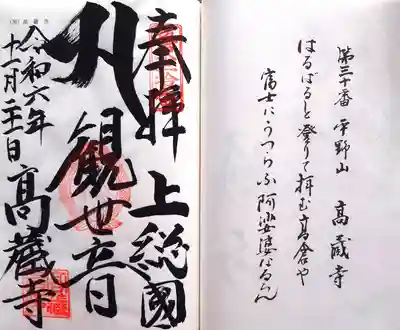 第三十番 平野山 高蔵寺
はるばると登りて拝む高倉や
富士にうつらふ阿娑婆なるらん
奉拝 上総國
観世音
令和六年
十一月二十三日 髙蔵寺